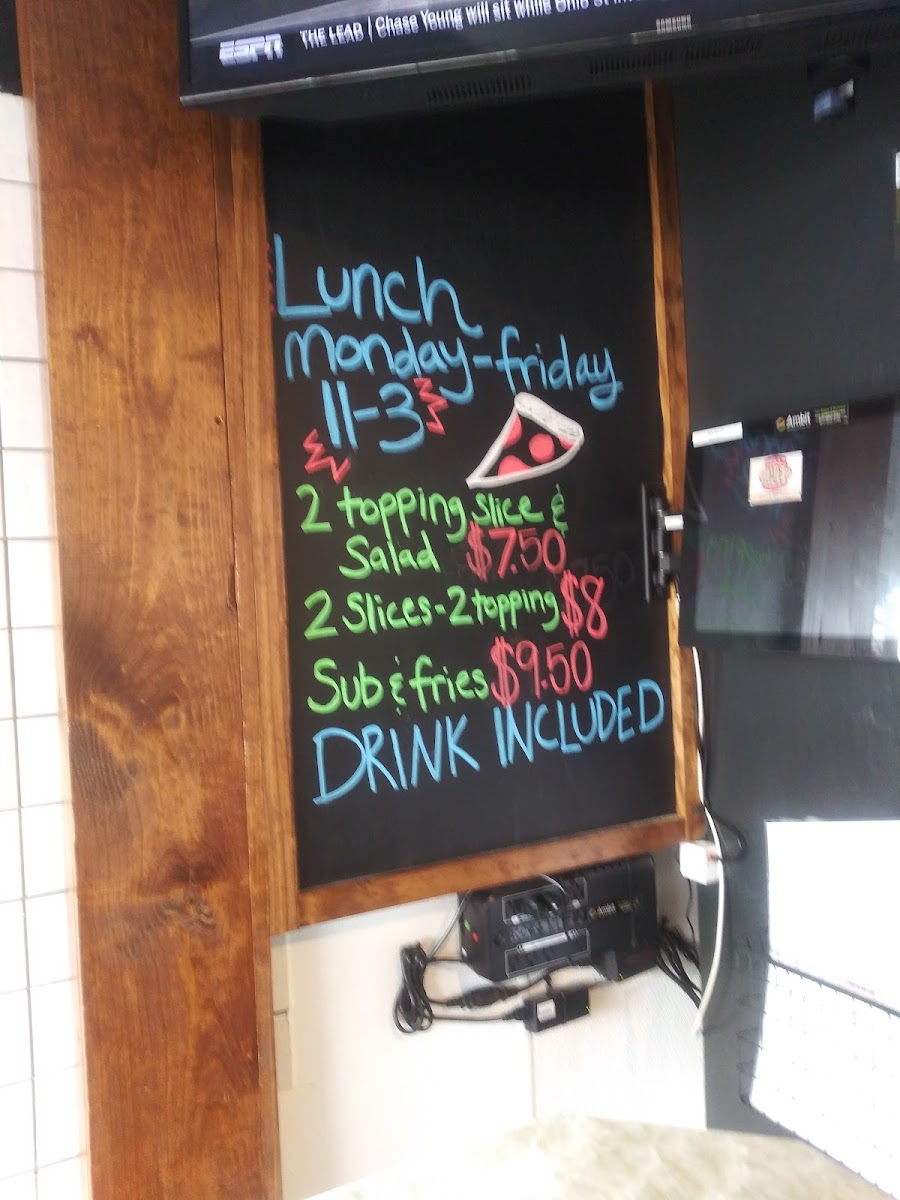 ESPN THE LEAD | Chase Young will sit while Ohio St
SAMSUNG
Lunch
monday-friday
11-3
2 topping slice &
Salad $7.50
2 Slices-2 topping $8
Sub & fries $9.50
DRINK INCLUDED
Ambit
Ambit